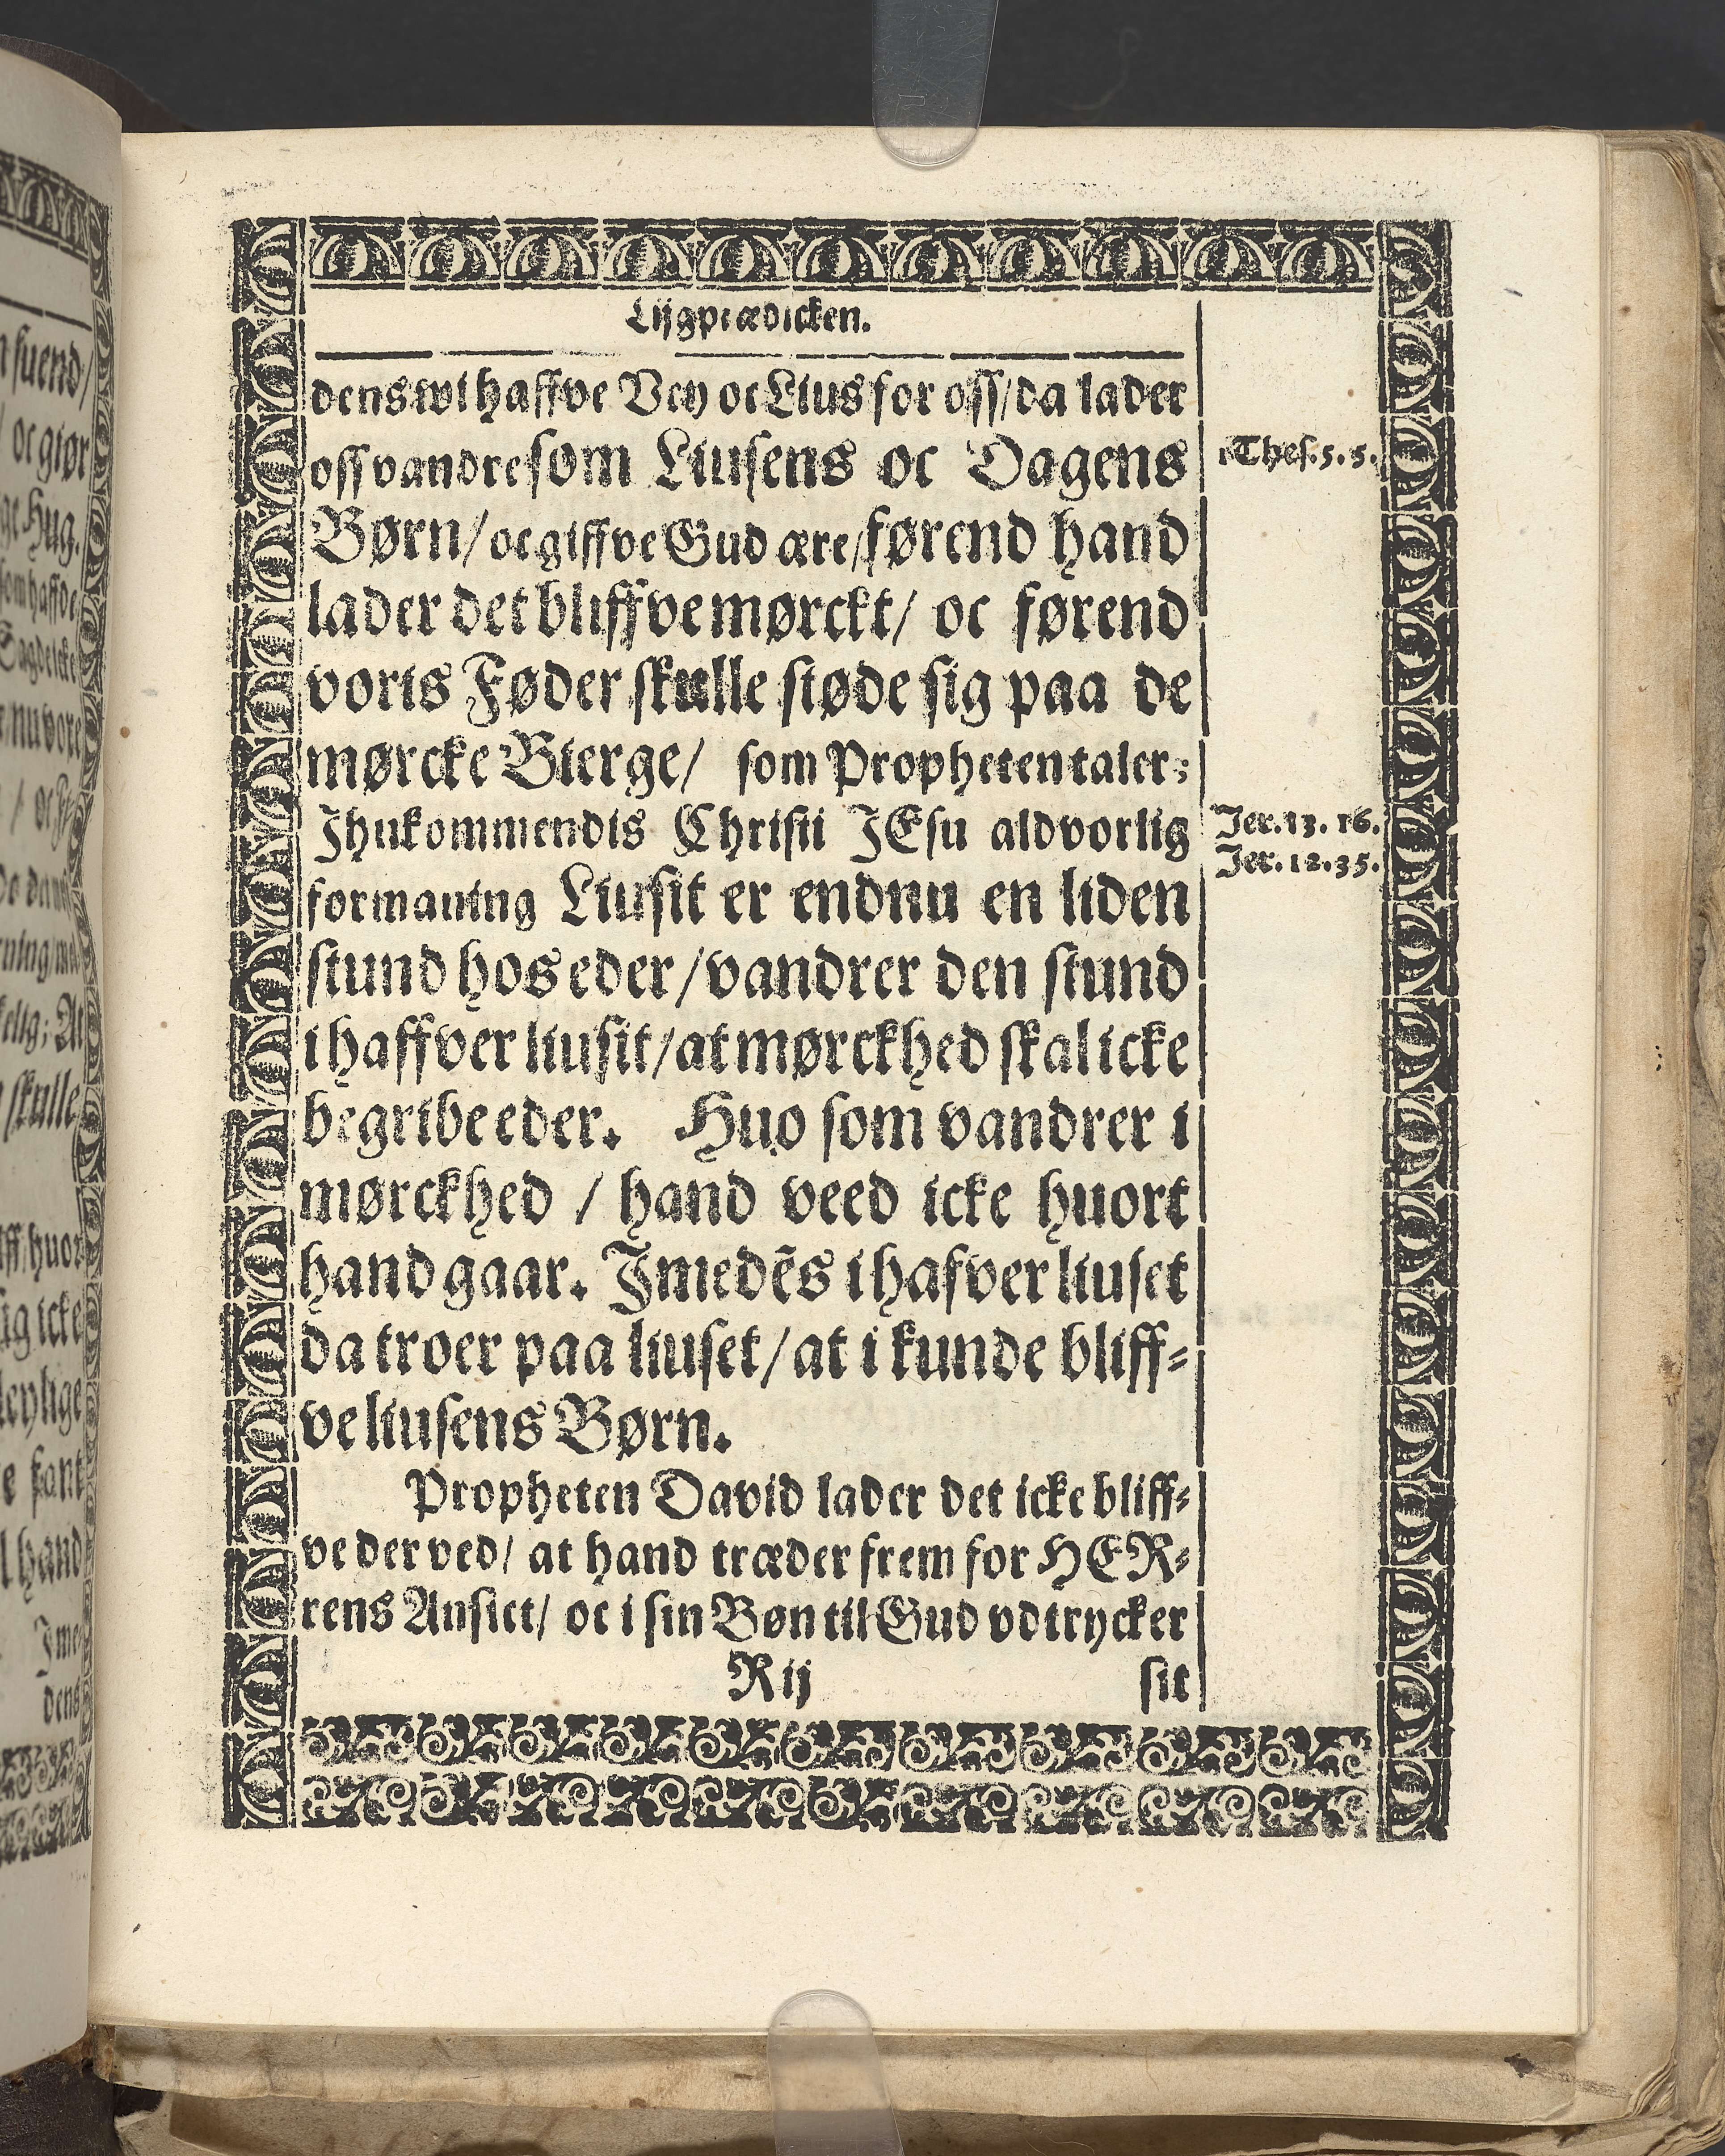 Lijgprædicken.
dens wi haffve Vey oc Lius for oss/ da lader
oss vandre som Liusens oc Dagens
1 Thes. 5. 5.
Børn/ oc giffve Gud ære/ førend hand
lader det bliffve mørckt/ oc førend
voris Føder skulle støde sig paa de
mørcke Bierge/ som Propheten taler;
Ihukommendis Christi JEsu aldvorlig
Jer. 13. 16.
Jer. 12. 35.
formaning Liusit er endnu en liden
stund hos eder/ vandrer den stund
i haffver liusit/ at mørckhed skal icke
begribe eder. Huo som vandrer i
mørckhed / hand veed icke huort
hand gaar. Imedẽs i hafver liuset
da troer paa liuset/ at i kunde bliff=
ve liusens Børn.
Propheten David lader det icke bliff=
ve der ved/ at hand træder frem for HER=
rens Ansict/ oc i sin Bøn til Gud vdtrycker
R ij
sit
suend/
oc giør
ge Hug.
som haffde
Sagde icke
nu vore
skulle
huor
sig icke
leylige
hand
Ime
dens